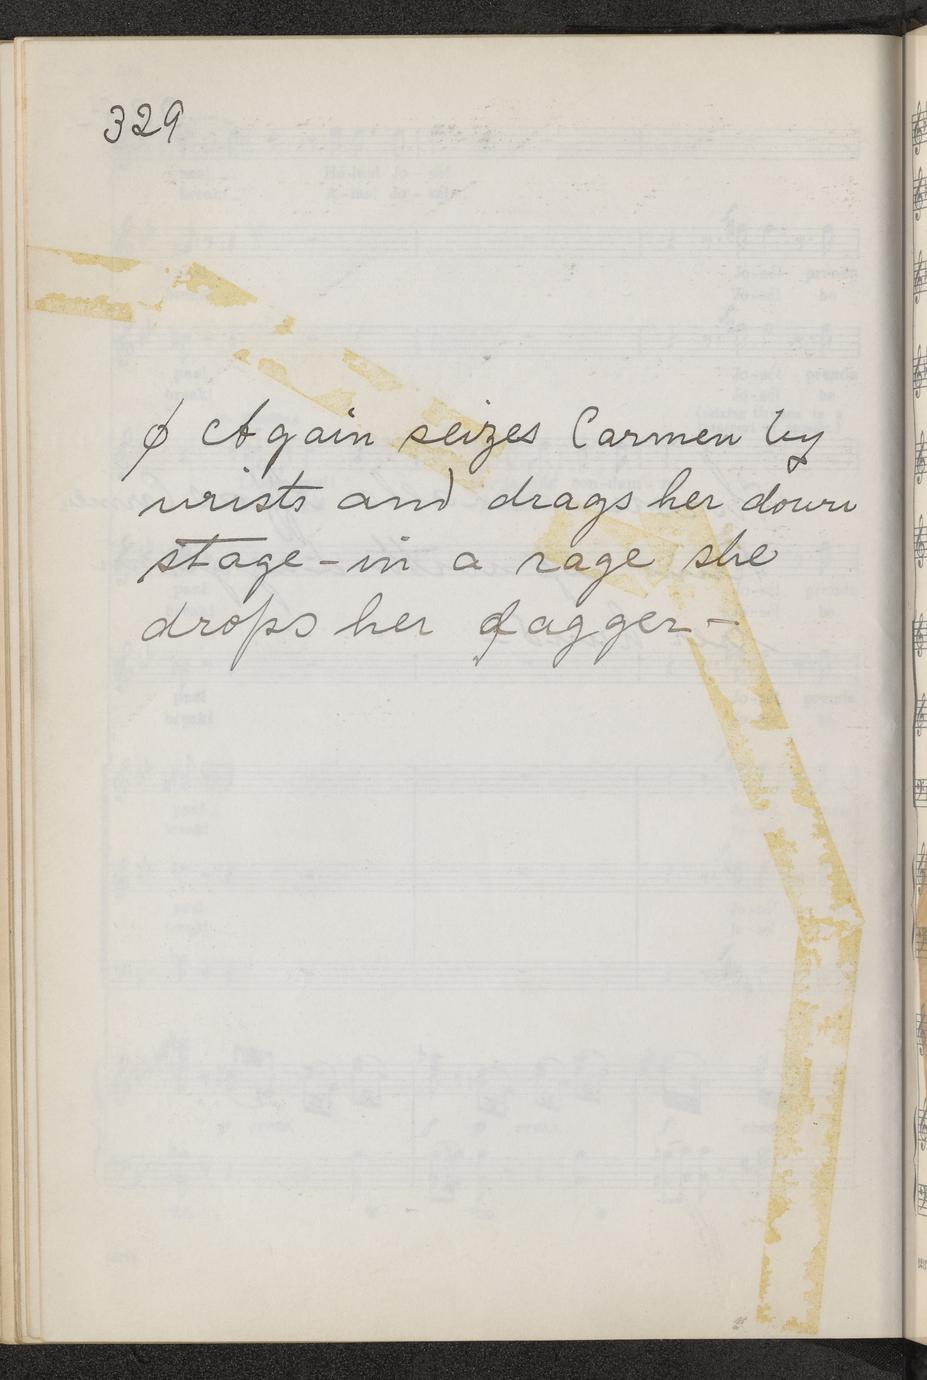 329
φ Again seizes Carmen by
wrists and drags her down
stage - in a rage she
drops her dagger -